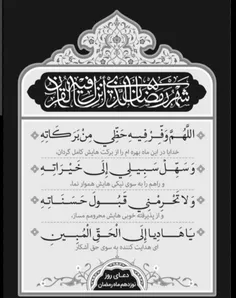 شهر رمضان الذی انزل فیه القرآن
اللَّهُمَّ وَفِّرْ فِيهِ حَظِّي مِنْ بَرَكَاتِهِ
خدایا در این ماه بهره ام را از برکت هایش کامل گردان،
وَ سَهِّلْ سَبِيلِي إِلَى خَيْرَاتِهِ
و راهم را به سوی نیکی هایش هموار نما،
وَ لَا تَحْرِمْنِي قَبُولَ حَسَنَاتِهِ
و از پذیرفته خوبی هایش محرومم مساز،
يَا هَادِيا إِلَى الْحَقِّ الْمُبِينِ
ای هدایت کننده به سوی حق آشکار
دعای روز
نوزدهم ماه رمضان